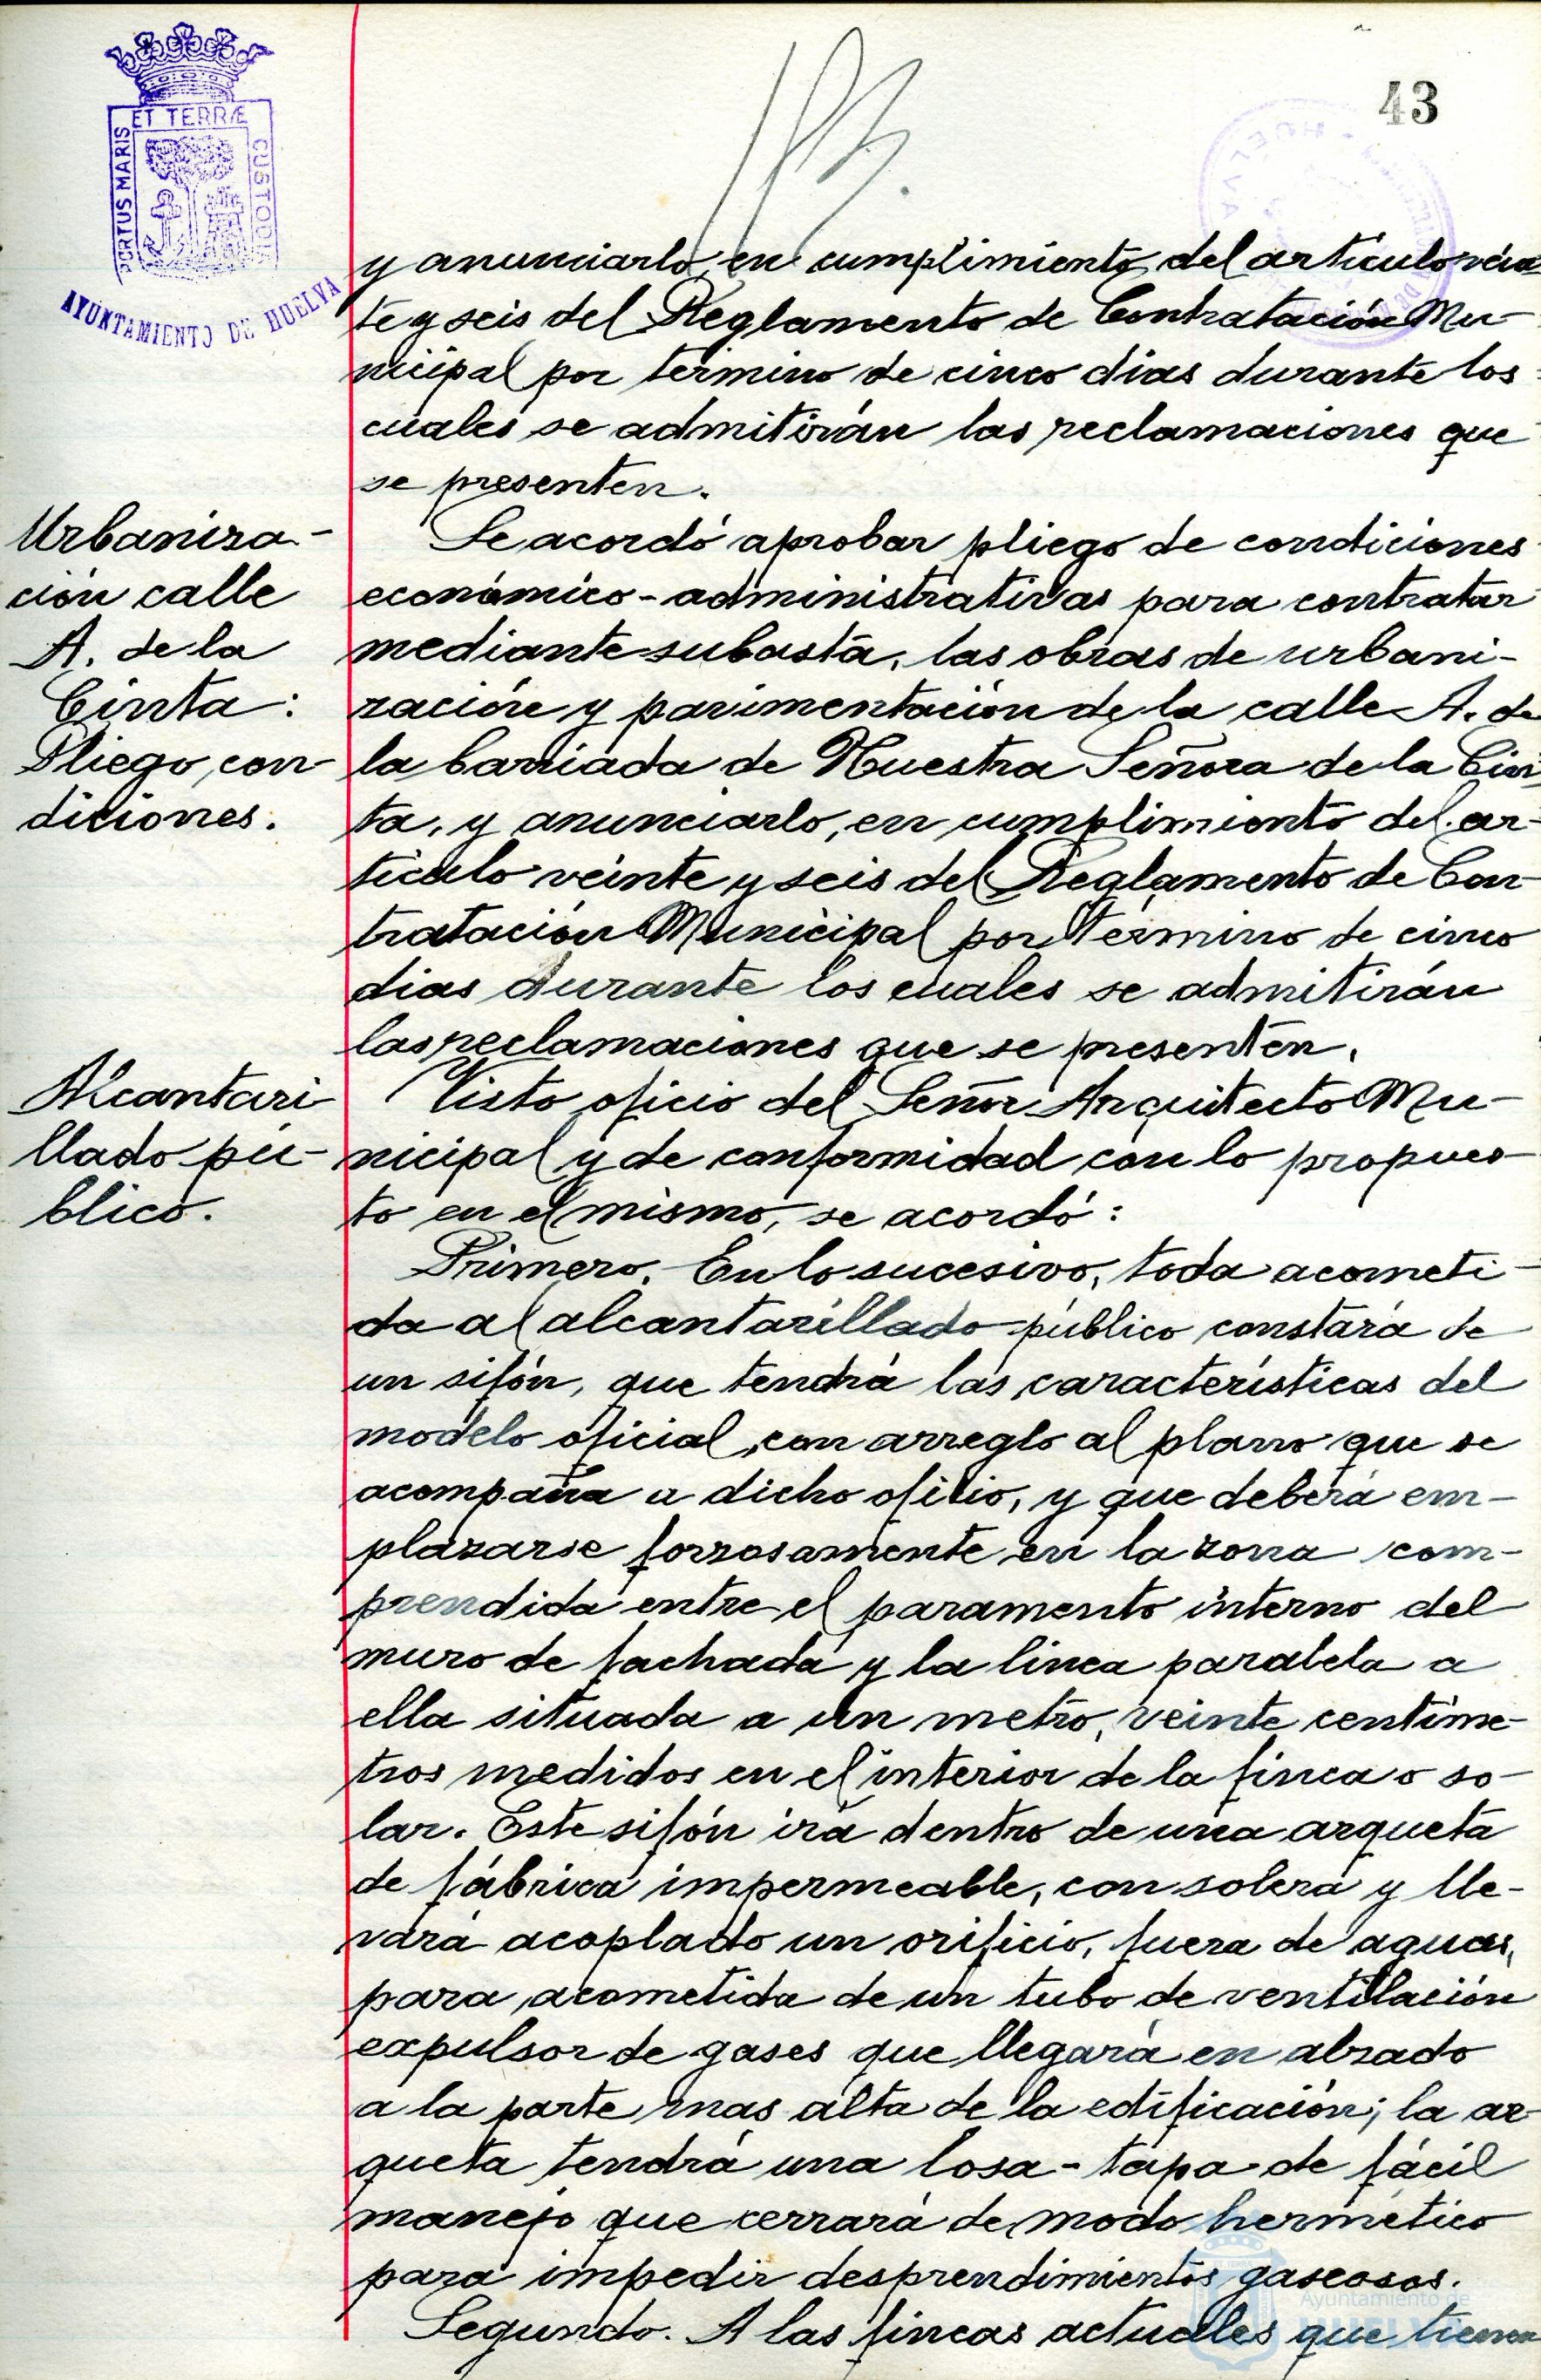 43
ET TERRÆ
PORTUS MARIS
CUSTODIA
AYUNTAMIENTO DE HUELVA
y anunciarlo, en cumplimiento del artículo vein-
te y seis del Reglamento de Contratación Mu-
nicipal por término de cinco dias durante los
cuales se admitirán las reclamaciones que
se presenten.
Urbaniza-
ción calle
A. de la
Cinta:
Pliego, con-
diciones.
Se acordó aprobar pliego de condiciones
económico-administrativas para contratar
mediante subasta, las obras de urbani-
zación y pavimentación de la calle A. de
la barriada de Nuestra Señora de la Cin-
ta, y anunciarlo, en cumplimiento del ar-
tículo veinte y seis del Reglamento de Con-
tratación Municipal por término de cinco
dias durante los cuales se admitirán
las reclamaciones que se presenten.
Alcantari
llado pú-
blico.
Visto oficio del Señor Arquitecto Mu-
nicipal y de conformidad con lo propues-
to en el mismo, se acordó:
Primero. En lo sucesivo, toda acometi-
da al alcantarillado público constará de
un sifón, que tendrá las características del
modelo oficial, con arreglo al plano que se
acompaña a dicho oficio, y que deberá em-
plazarse forzosamente en la zona com-
prendida entre el paramento interno del
muro de fachada y la linea paralela a
ella situada a un metro, veinte centíme-
tros medidos en el interior de la finca o so-
lar. Este sifón irá dentro de una arqueta
de fábrica impermeable, con solera y lle-
vará acoplado un orificio, fuera de aguas,
para acometida de un tubo de ventilación
expulsor de gases que llegará en alzado
a la parte mas alta de la edificación; la ar-
queta tendrá una losa-tapa de fácil
manejo que cerrará de modo hermético
para impedir desprendimientos gaseosos.
Segundo. A las fincas actuales que tienen
Ayuntamiento de
HUELVA